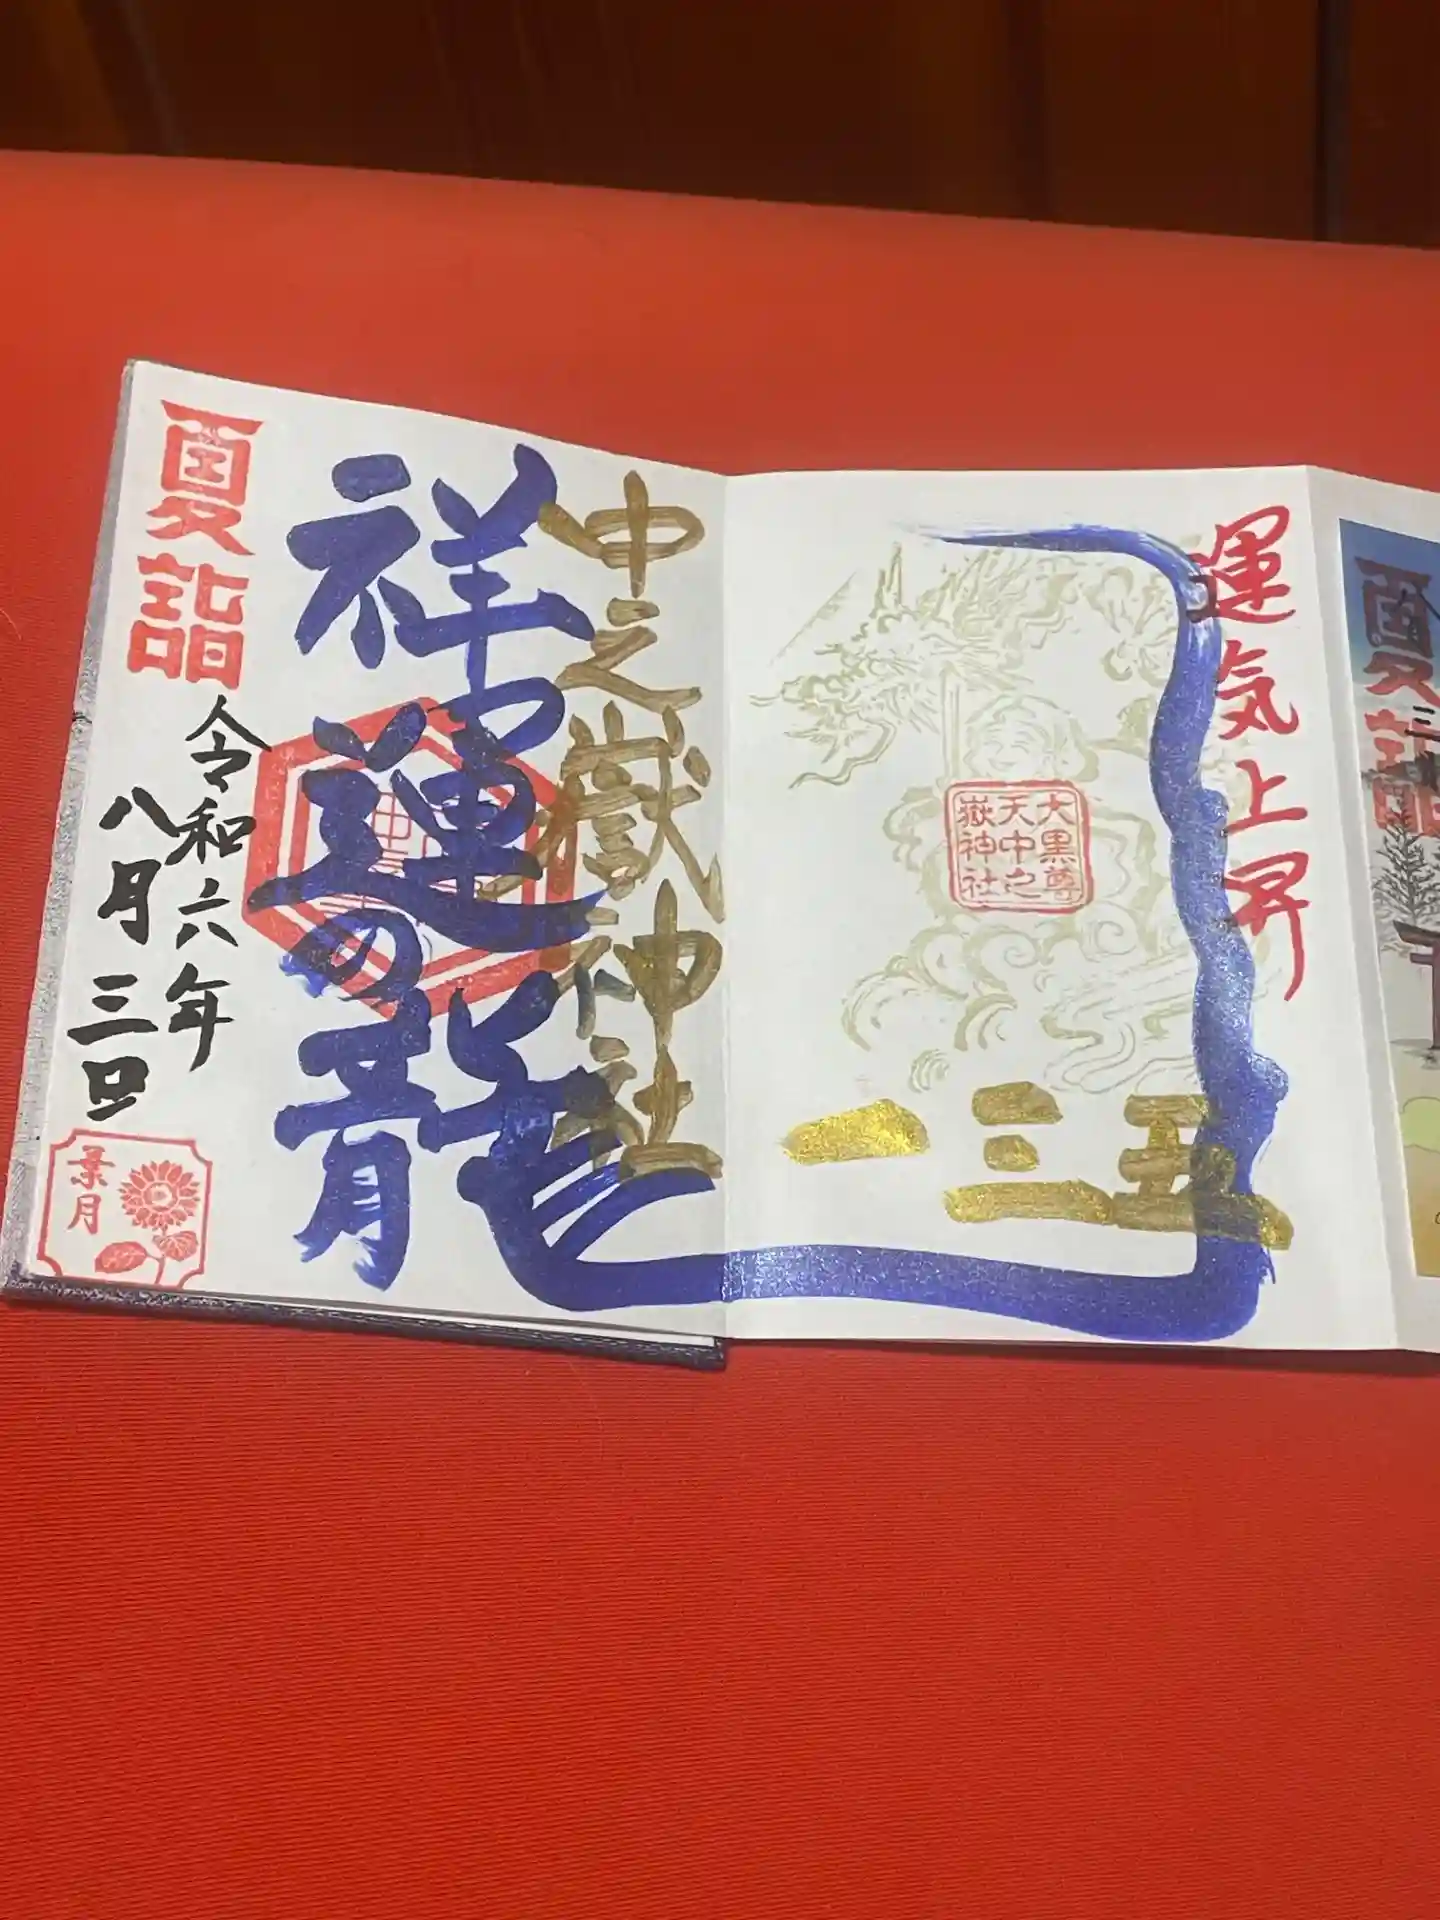 運気上昇
大黒尊
天中之
嶽神社
一三五
中之嶽神社
祥運の龍
夏詣
令和六年
八月三日
景月
夏詣